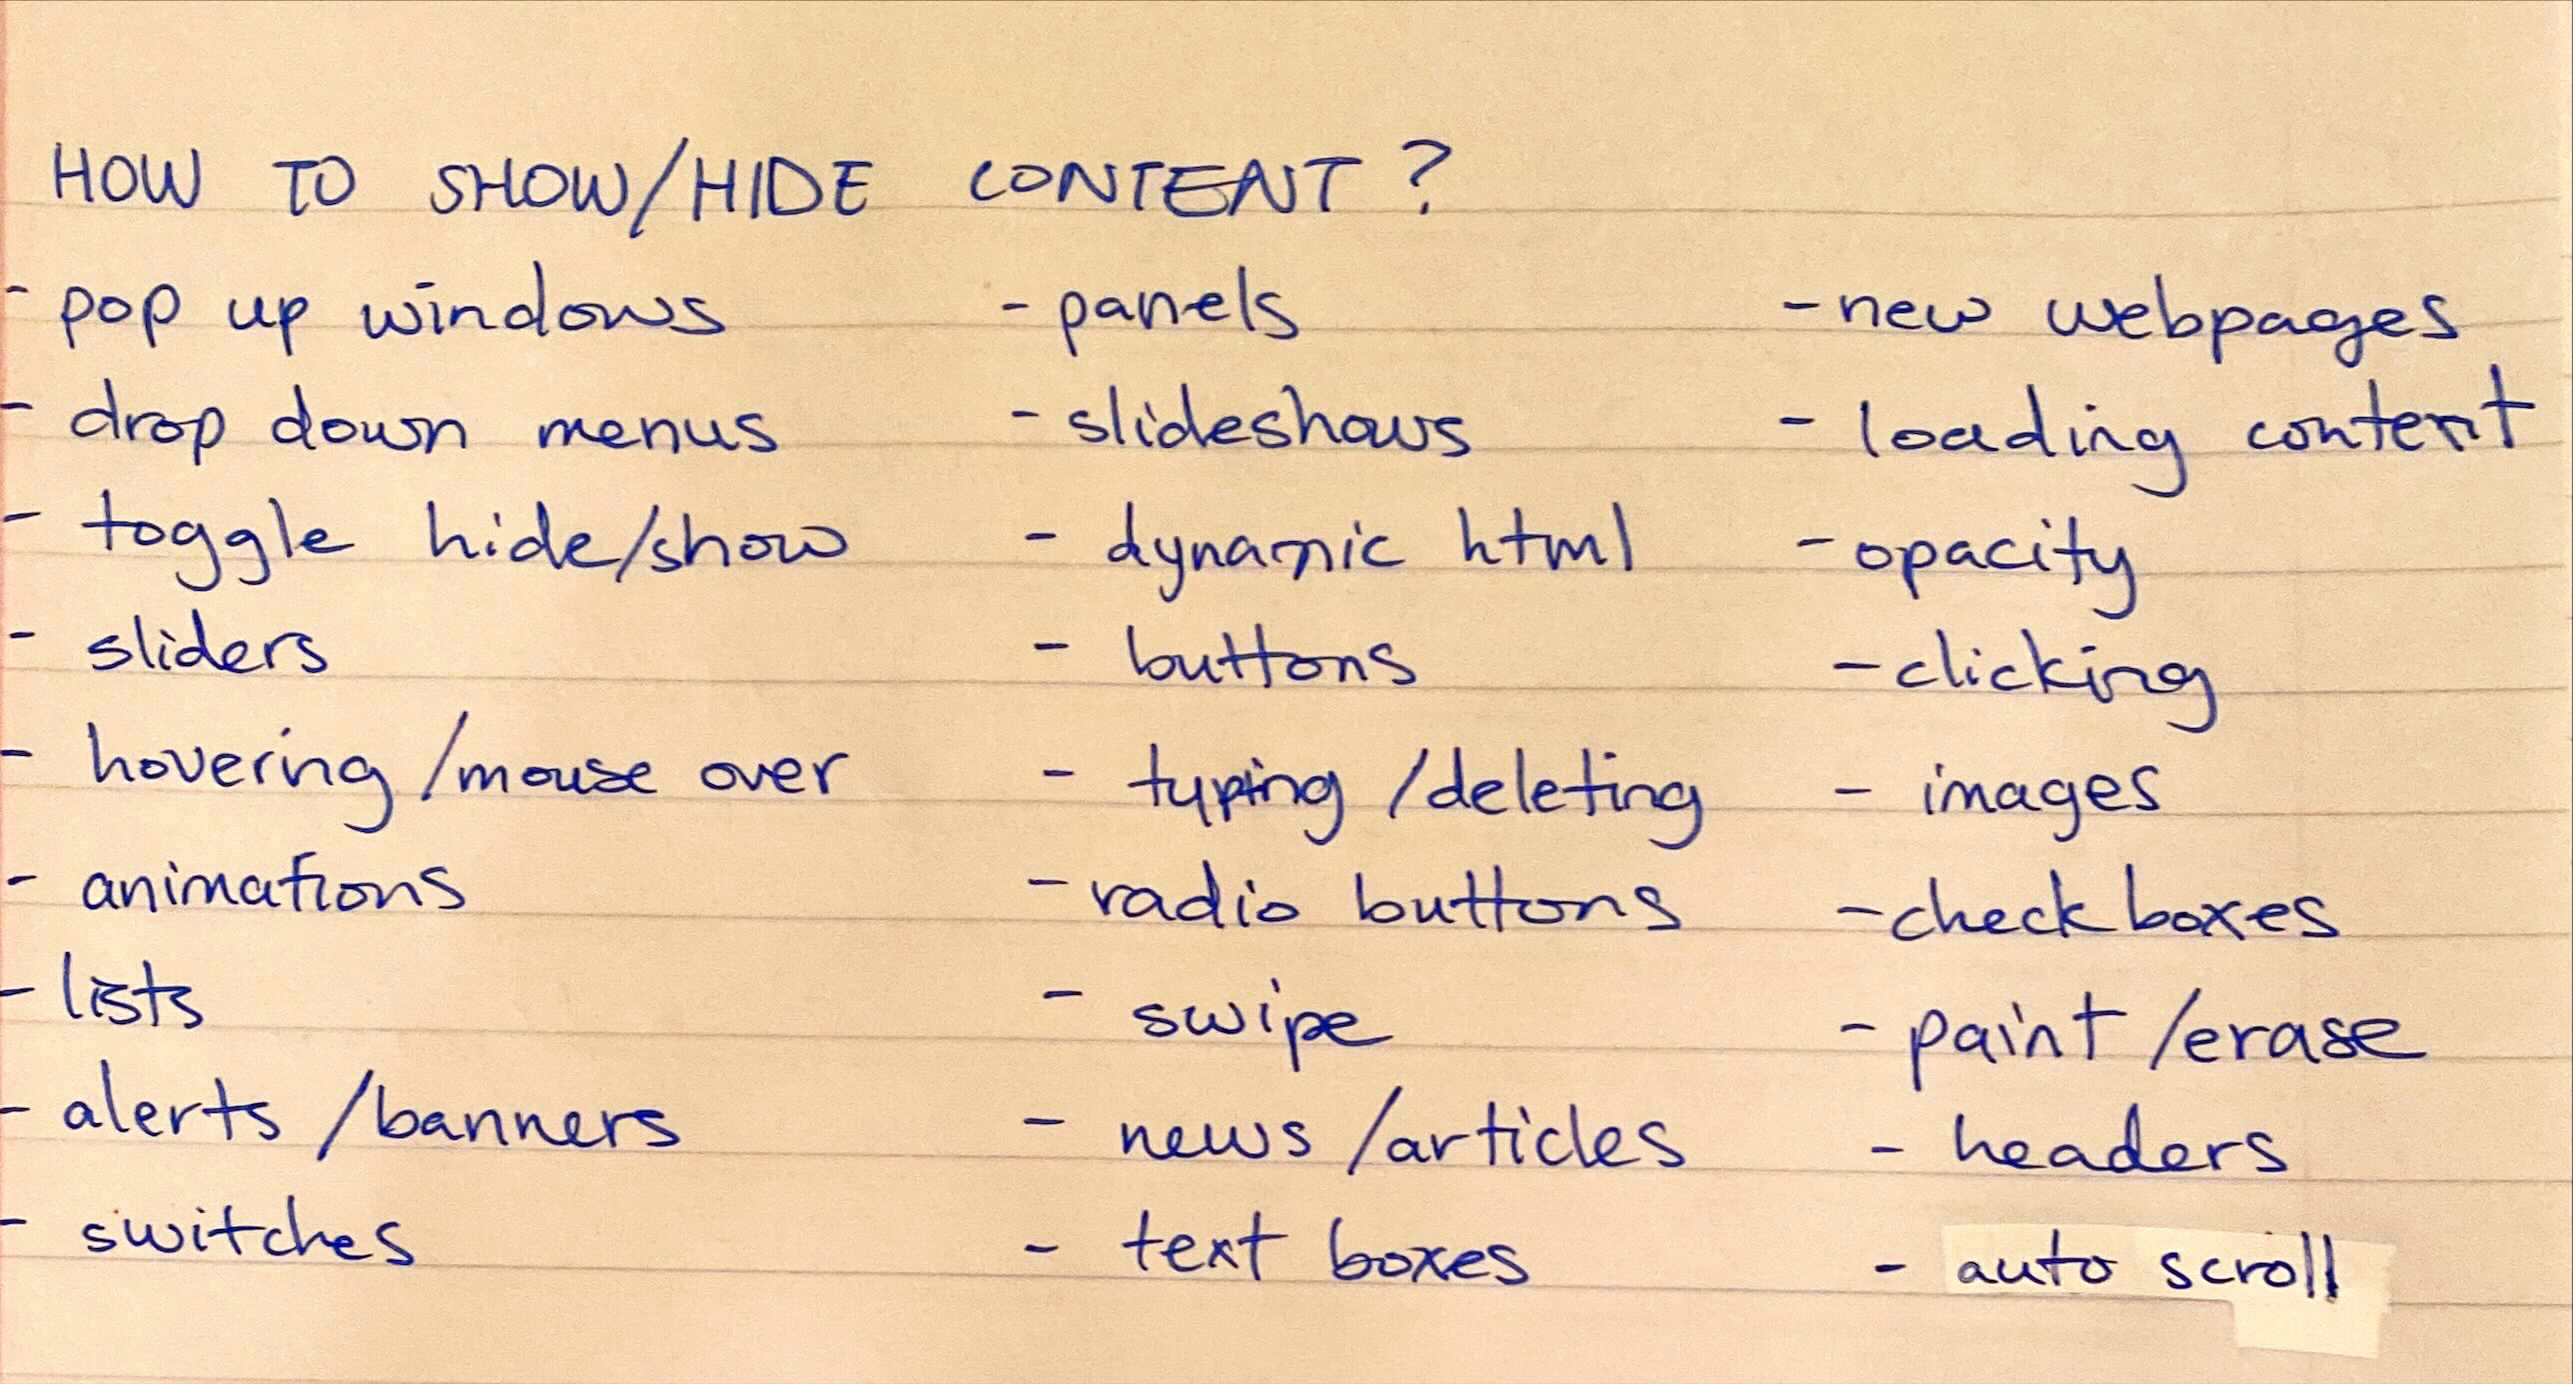 HOW TO SHOW/HIDE CONTENT?
- pop up windows
- drop down menus
- toggle hide/show
- sliders
- hovering /mouse over
- animations
- lists
- alerts /banners
- switches
- panels
- slideshows
- dynamic html
- buttons
- typing /deleting
- radio buttons
- swipe
- news /articles
- text boxes
- new webpages
- loading content
- opacity
- clicking
- images
- check boxes
- paint /erase
- headers
- auto scroll